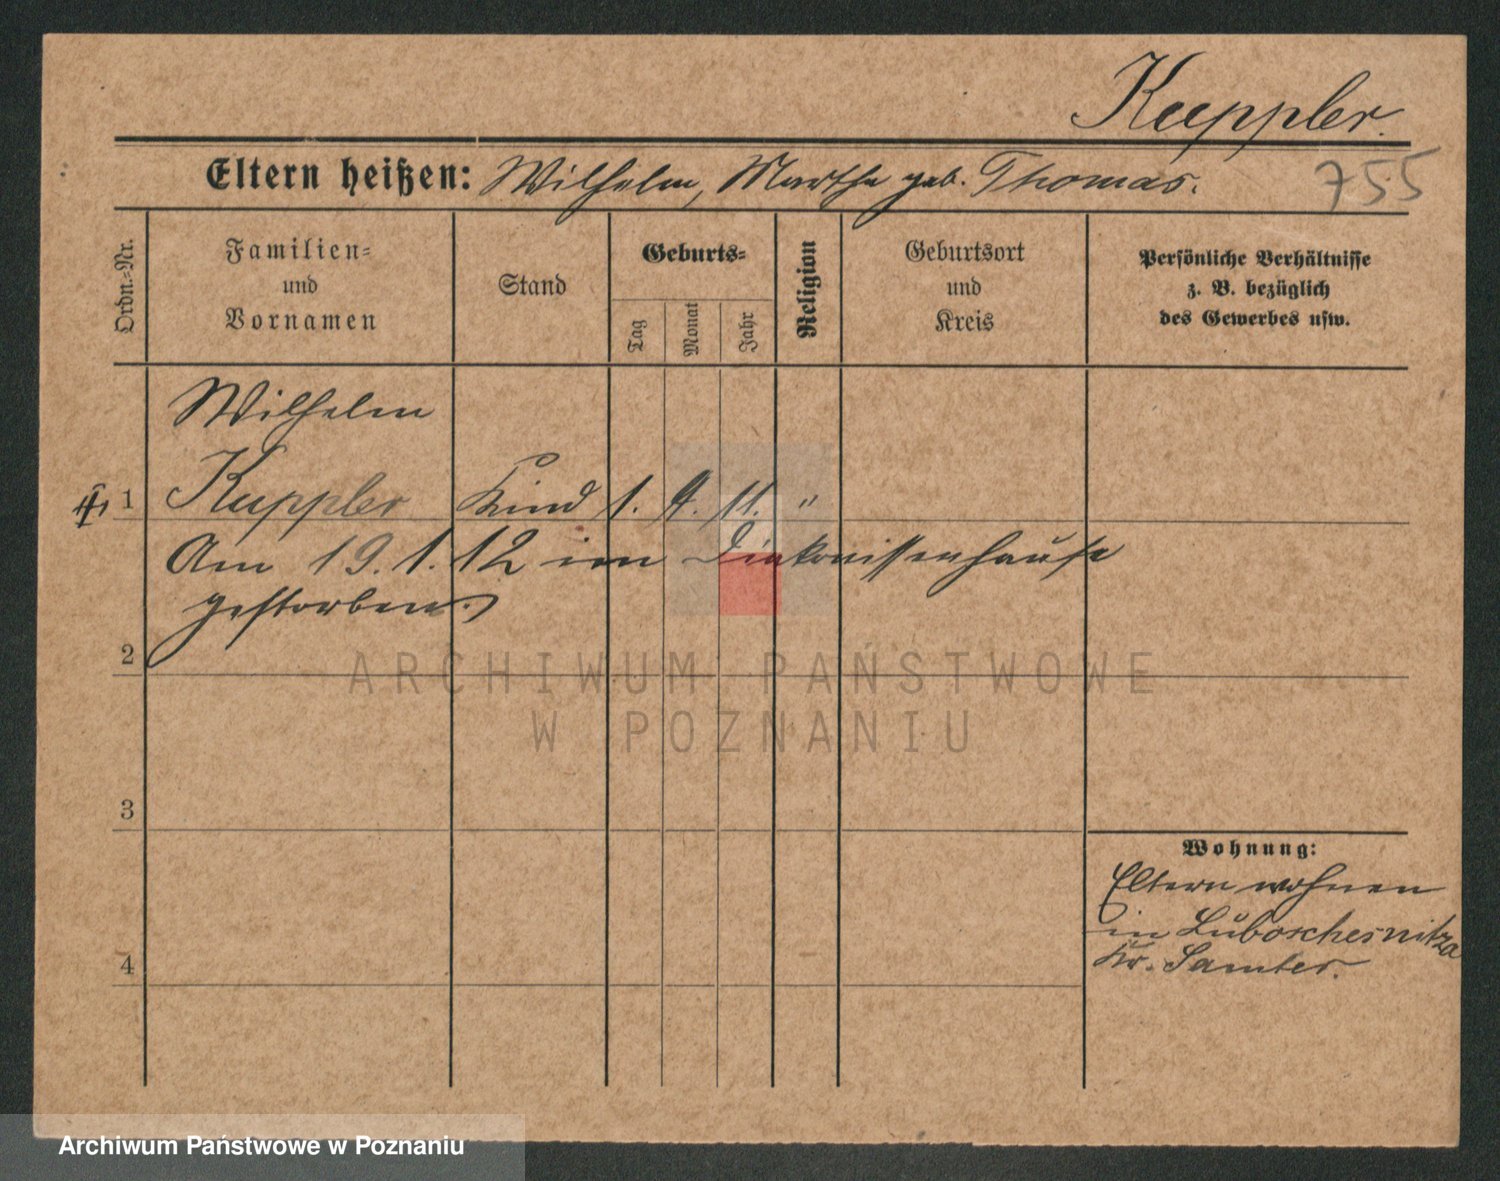 Kuppler.
Eltern heißen: Wilhelm, Martha geb. Thomas.
755
Ordn.-Nr.
Familien-
und
Vornamen
Stand
Geburts-
Tag
Monat
Jahr
Religion
Geburtsort
und
Kreis
Persönliche Verhältnisse
z. B. bezüglich
des Gewerbes usw.
Wilhelm
1 Kuppler Kind 1. 9. 11. "
Am 19.1.12 im Diakonissenhause
gestorben.
2
3
4
Wohnung:
Eltern wohnen
in Luboschesnitza
Kr. Samter.
ARCHIWUM PAŃSTWOWE
W POZNANIU
Archiwum Państwowe w Poznaniu